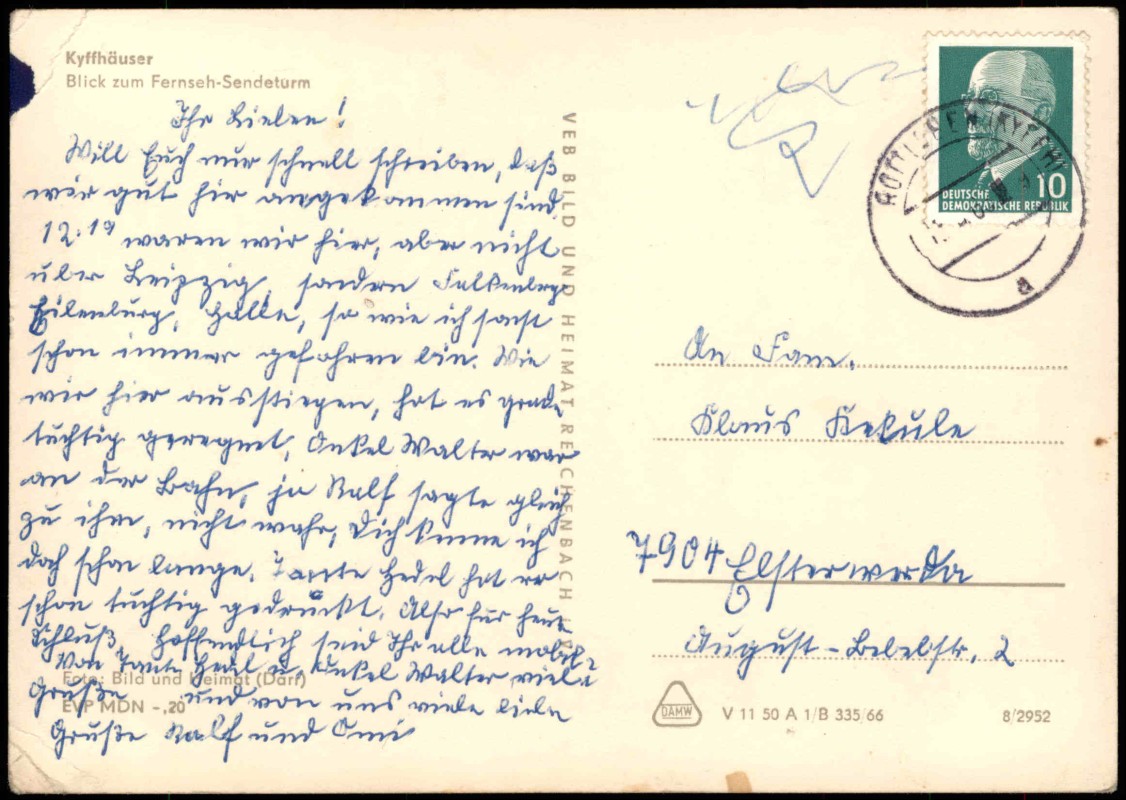 Kyffhäuser
Blick zum Fernseh-Sendeturm
Ihr Lieben!
Will Euch nur schnell schreiben, daß
wir gut hir angekommen sind.
12.19 waren wir hier, aber nicht
über Leipzig, sondern Falkenberg
Eilenburg, Halle, so wie ich sonst
schon immer gefahren bin. Wie
wir hier ausstiegen, hat es grade
tüchtig geregnet, Onkel Walter war
an der Bahn, ja Ralf sagte gleich
zu ihm, nicht wahr, Dich kenne ich
doch schon lange. Tante Hedel hat er
schon tüchtig gedrückt. Also für heut
Schluß, Hoffendlich seid Ihr alle mobil?
Von Tante Hedl u. Onkel Walter viele
Grüße und von uns viele liebe
Grüße Ralf und Omi
Foto: Bild und Heimat (Darr)
EVP MDN -,20
VEB BILD UND HEIMAT REICHENBACH
DEUTSCHE
DEMOKRATISCHE REPUBLIK
10
a
An Fam.
Klaus Kekule
7904 Elsterwerda
August-Bebelstr. 2
DAMW
V 11 50 A 1/B 335/66
8/2952